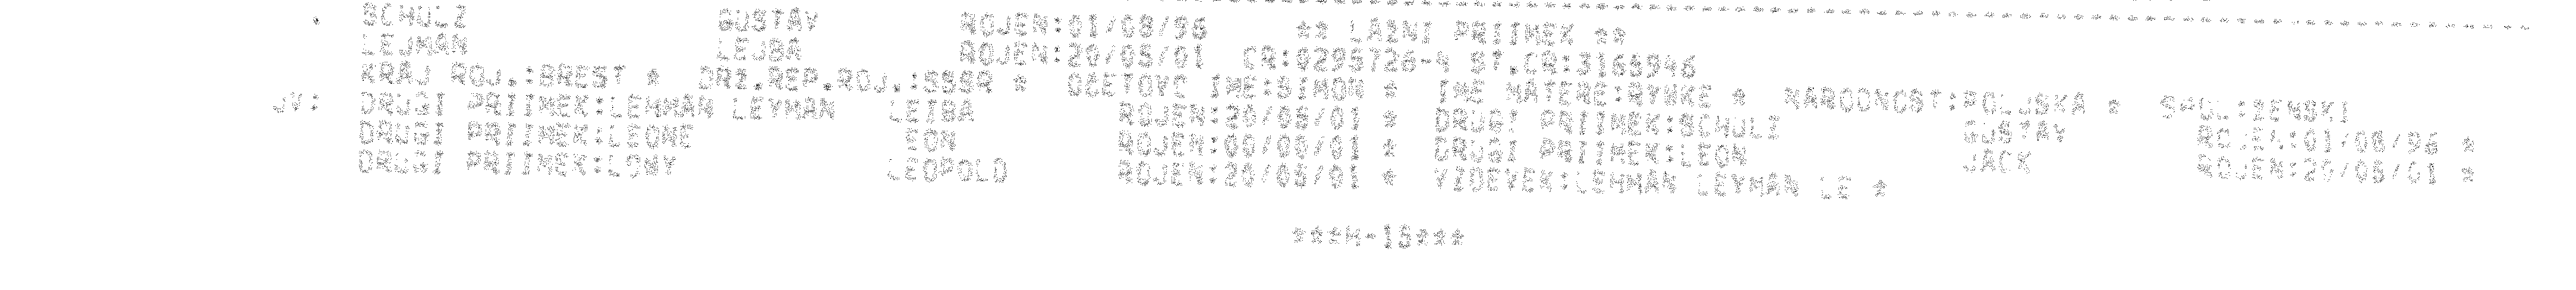 SCHULZ GUSTAV ROJEN:01/08/96 ** LAZNI PRIIMEK **
LEJMAN LEJBA ROJEN:20/05/01 CR:0295726-4 ST.CR:3165946
KRAJ ROJ.:BREST * DRZ.REP.ROJ.:SSSR * OCETOVC IME:SIMON * IME MATERE:RYWKE * NARODNOST:POLJSKA *
JV: DRUGI PRIIMEK:LEHMAN LEYMAN LEIBA ROJEN:20/05/01 * DRUGI PRIIMEK:SCHULZ GUSTAV ROJEN:01/08/96 *
DRUGI PRIIMEK:LEONE EON ROJEN:00/00/01 * DRUGI PRIIMEK:LEON JACK ROJEN:20/05/01 *
DRUGI PRIIMEK:LONY LEOPOLD ROJEN:20/05/01 * VZDEVEK:LEHMAN LEYMAN LE *
***M-18***